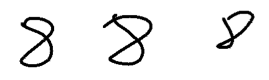 8 8 8